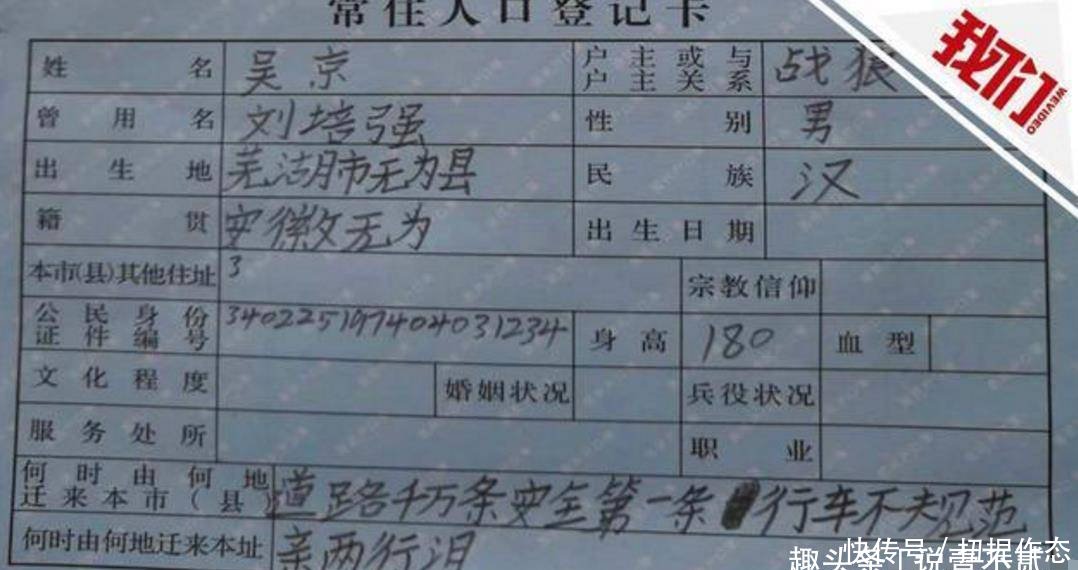 常住人口登记卡
我们
WEVIDEO
姓名 吴京 户主或与户主关系 战狼
曾用名 刘培强 性别 男
出生地 芜湖市无为县 民族 汉
籍贯 安徽无为 出生日期
本市(县)其他住址 3 宗教信仰
公民身份证件编号 340225197404031234 身高 180 血型
文化程度 婚姻状况 兵役状况
服务处所 职业
何时由何地迁来本市(县) 道路千万条安全第一条 行车不规范
何时由何地迁来本址 亲两行泪
快传号/